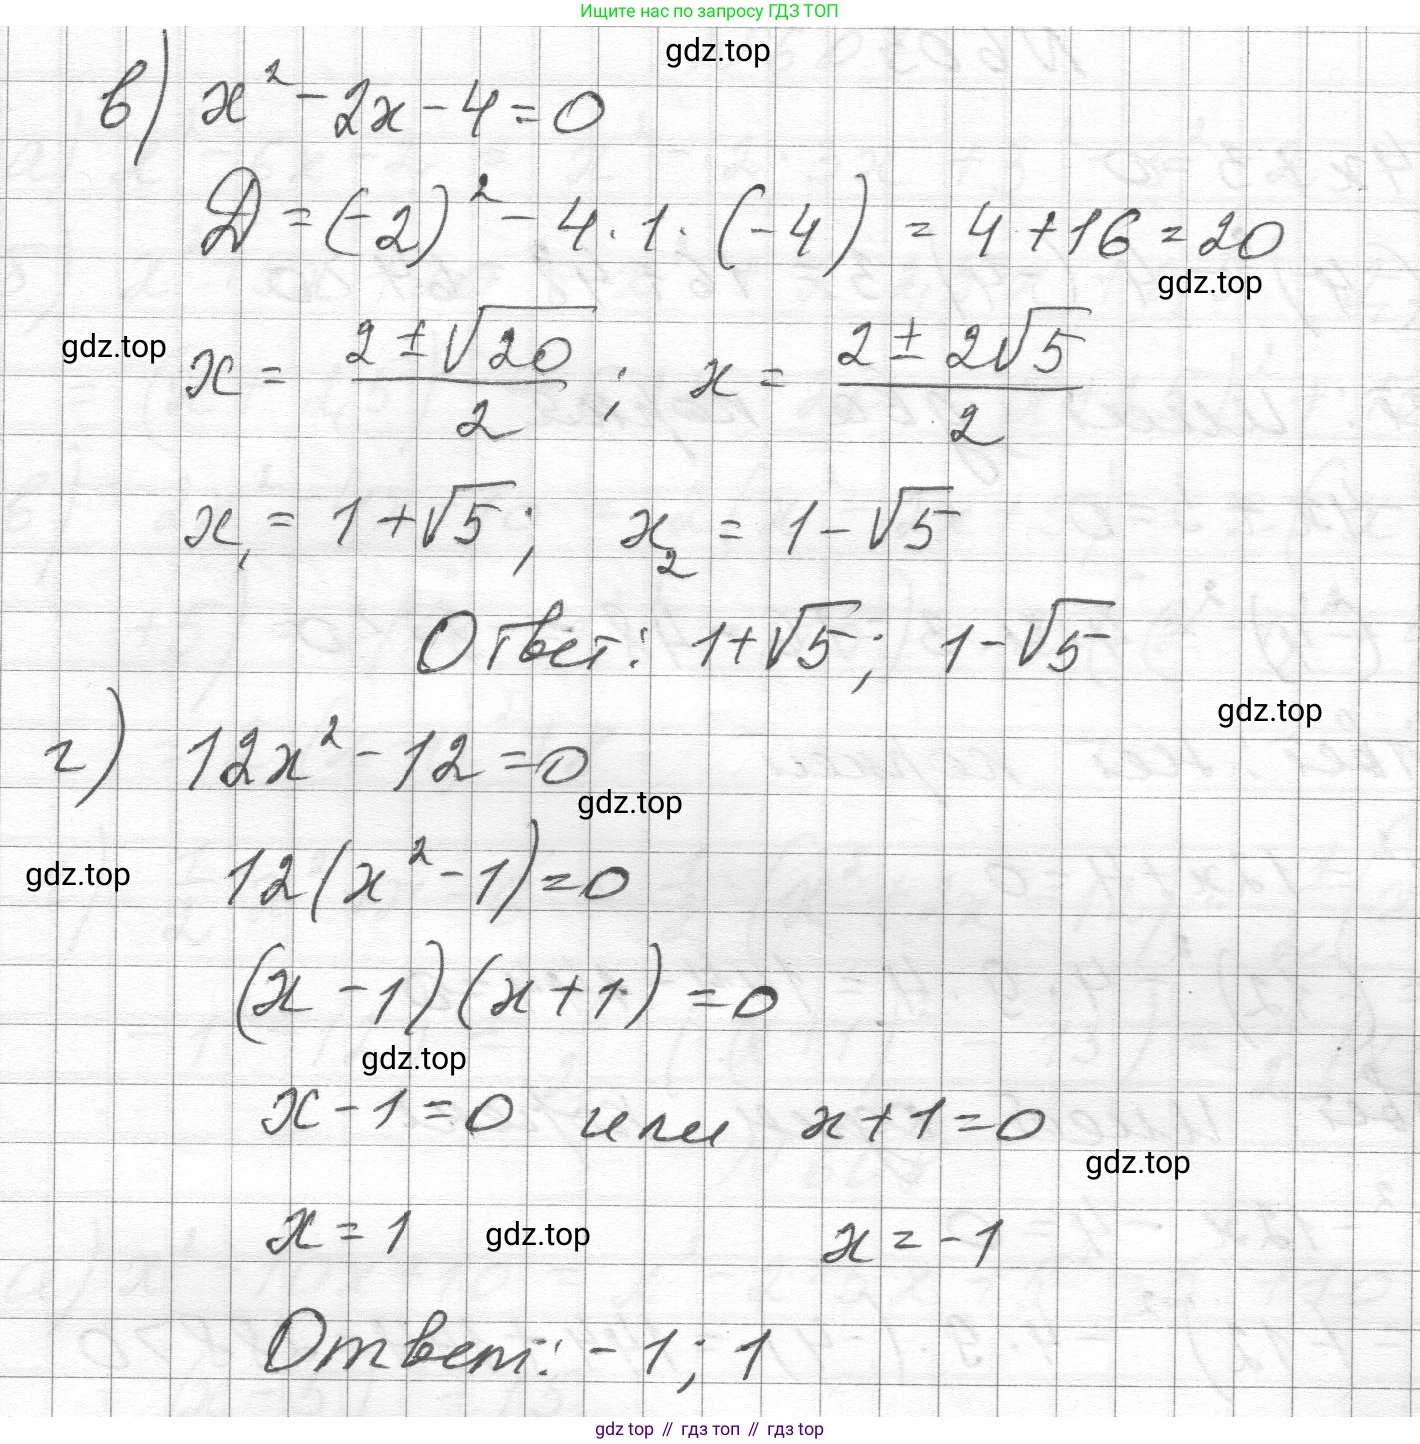 Ищите нас по запросу ГДЗ ТОП
gdz.top
в) x² - 2x - 4 = 0
D = (-2)² - 4 · 1 · (-4) = 4 + 16 = 20
gdz.top
gdz.top
x = (2 ± √20)/2 ; x = (2 ± 2√5)/2
x₁ = 1 + √5 ; x₂ = 1 - √5
Ответ: 1 + √5 ; 1 - √5
gdz.top
г) 12x² - 12 = 0
gdz.top
12(x² - 1) = 0
gdz.top
(x - 1)(x + 1) = 0
gdz.top
x - 1 = 0 или x + 1 = 0
gdz.top
x = 1 gdz.top x = -1
Ответ: -1 ; 1
gdz top // гдз топ // гдз top